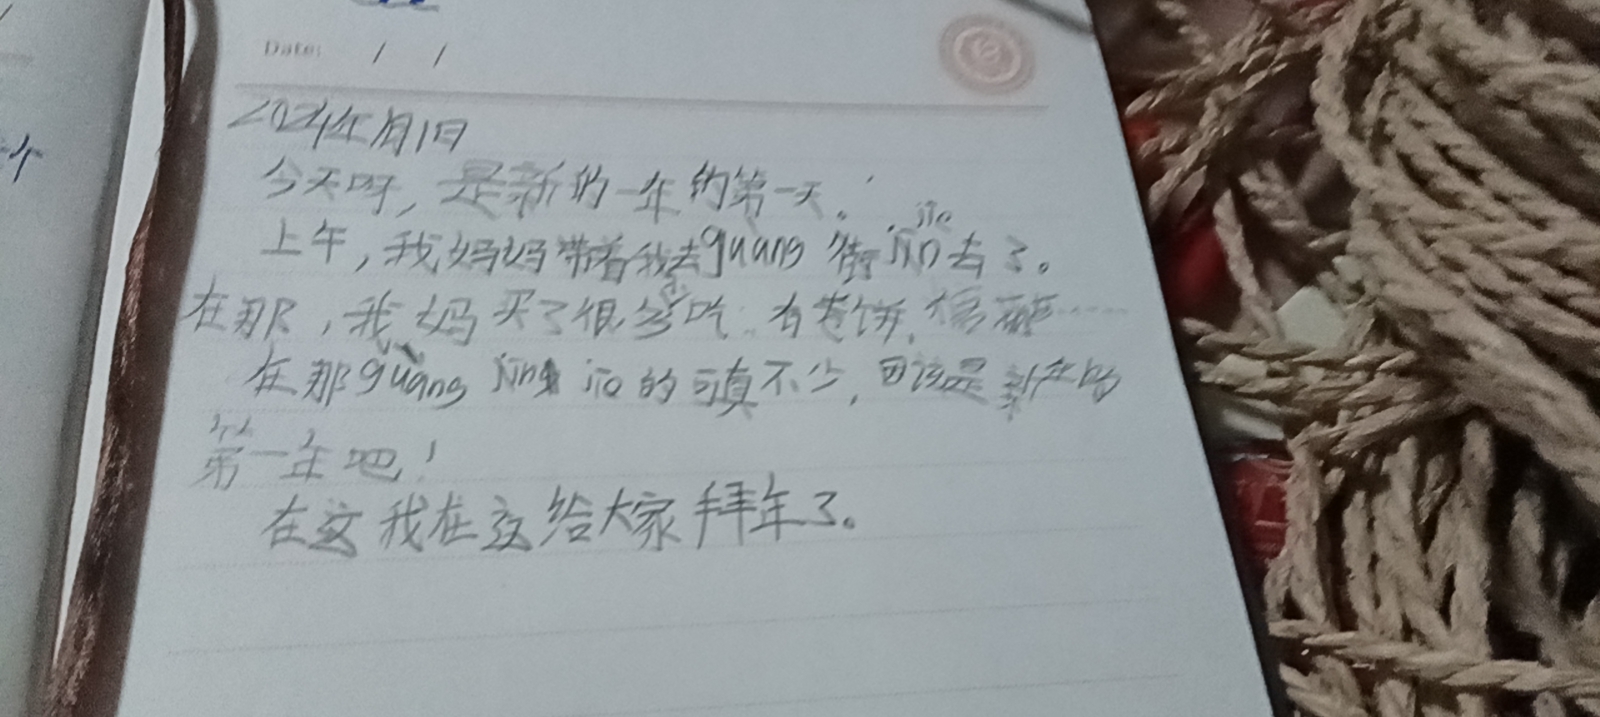 Date: / /
2024年1月1日
今天呀，是新的一年的第一天。
jiē
上午，我妈妈带着我去guang 街 去了。
在那，我妈买了很多吃 有卷饼，……
在那guàng 的可真不少，因该是新年的
第一年吧！
在这我在这给大家拜年了。